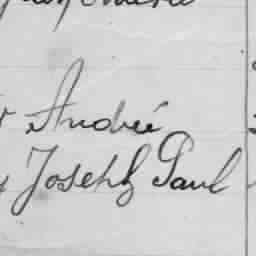 André
Joseph Paul